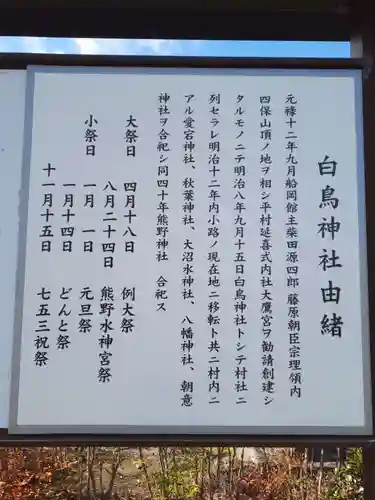 白鳥神社由緒
元禄十二年九月船岡館主柴田源四郎 藤原朝臣宗理領内
四保山頂ノ地ヲ相シ平村延喜式内社大鷹宮ヲ勧請創建シ
タルモノニテ明治八年九月十五日白鳥神社トシテ村社ニ
列セラレ明治十二年内小路ノ現在地ニ移転ト共ニ村内ニ
アル愛宮神社、秋葉神社、大沼水神社、八幡神社、朝意
神社ヲ合祀シ同四十年熊野神社 合祀ス
大祭日 四月十八日 例大祭
八月二十四日 熊野水神宮祭
小祭日 一月一日 元旦祭
一月十四日 どんと祭
十一月十五日 七五三祝祭